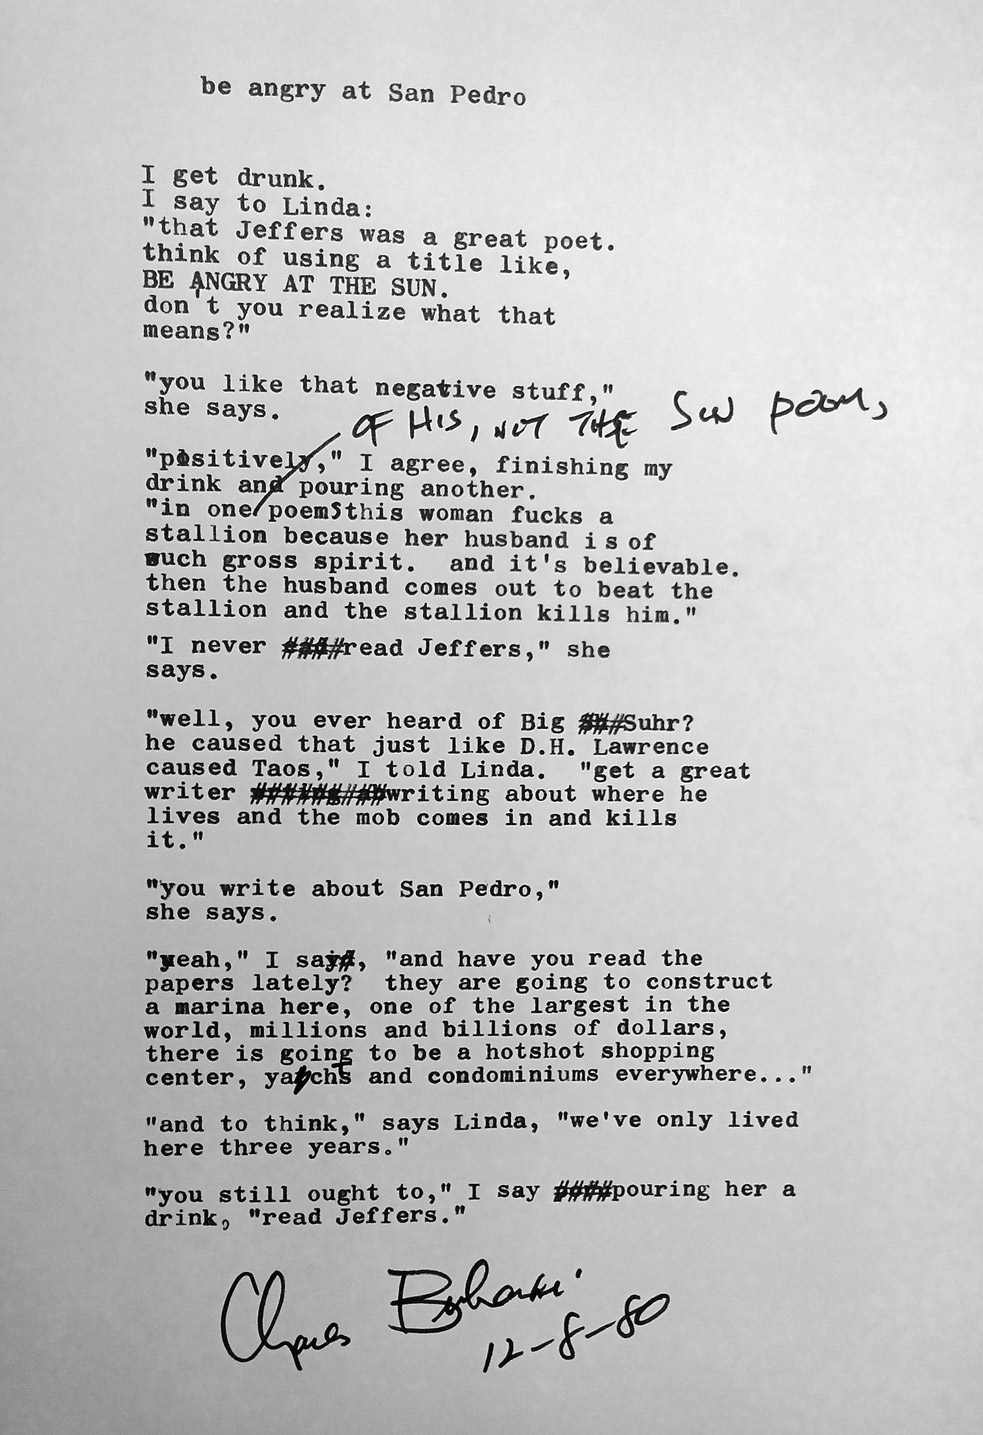 be angry at San Pedro
I get drunk.
I say to Linda:
"that Jeffers was a great poet.
think of using a title like,
BE ANGRY AT THE SUN.
don't you realize what that
means?"
"you like that negative stuff,"
she says.
OF HIS, NOT THE SUN POEM,
"positively," I agree, finishing my
drink and pouring another.
"in one poem this woman fucks a
stallion because her husband is of
such gross spirit. and it's believable.
then the husband comes out to beat the
stallion and the stallion kills him."
"I never read Jeffers," she
says.
"well, you ever heard of Big Suhr?
he caused that just like D.H. Lawrence
caused Taos," I told Linda. "get a great
writer writing about where he
lives and the mob comes in and kills
it."
"you write about San Pedro,"
she says.
"yeah," I say, "and have you read the
papers lately? they are going to construct
a marina here, one of the largest in the
world, millions and billions of dollars,
there is going to be a hotshot shopping
center, yachts and condominiums everywhere..."
"and to think," says Linda, "we've only lived
here three years."
"you still ought to," I say pouring her a
drink, "read Jeffers."
Charles Bukowski
12-8-80